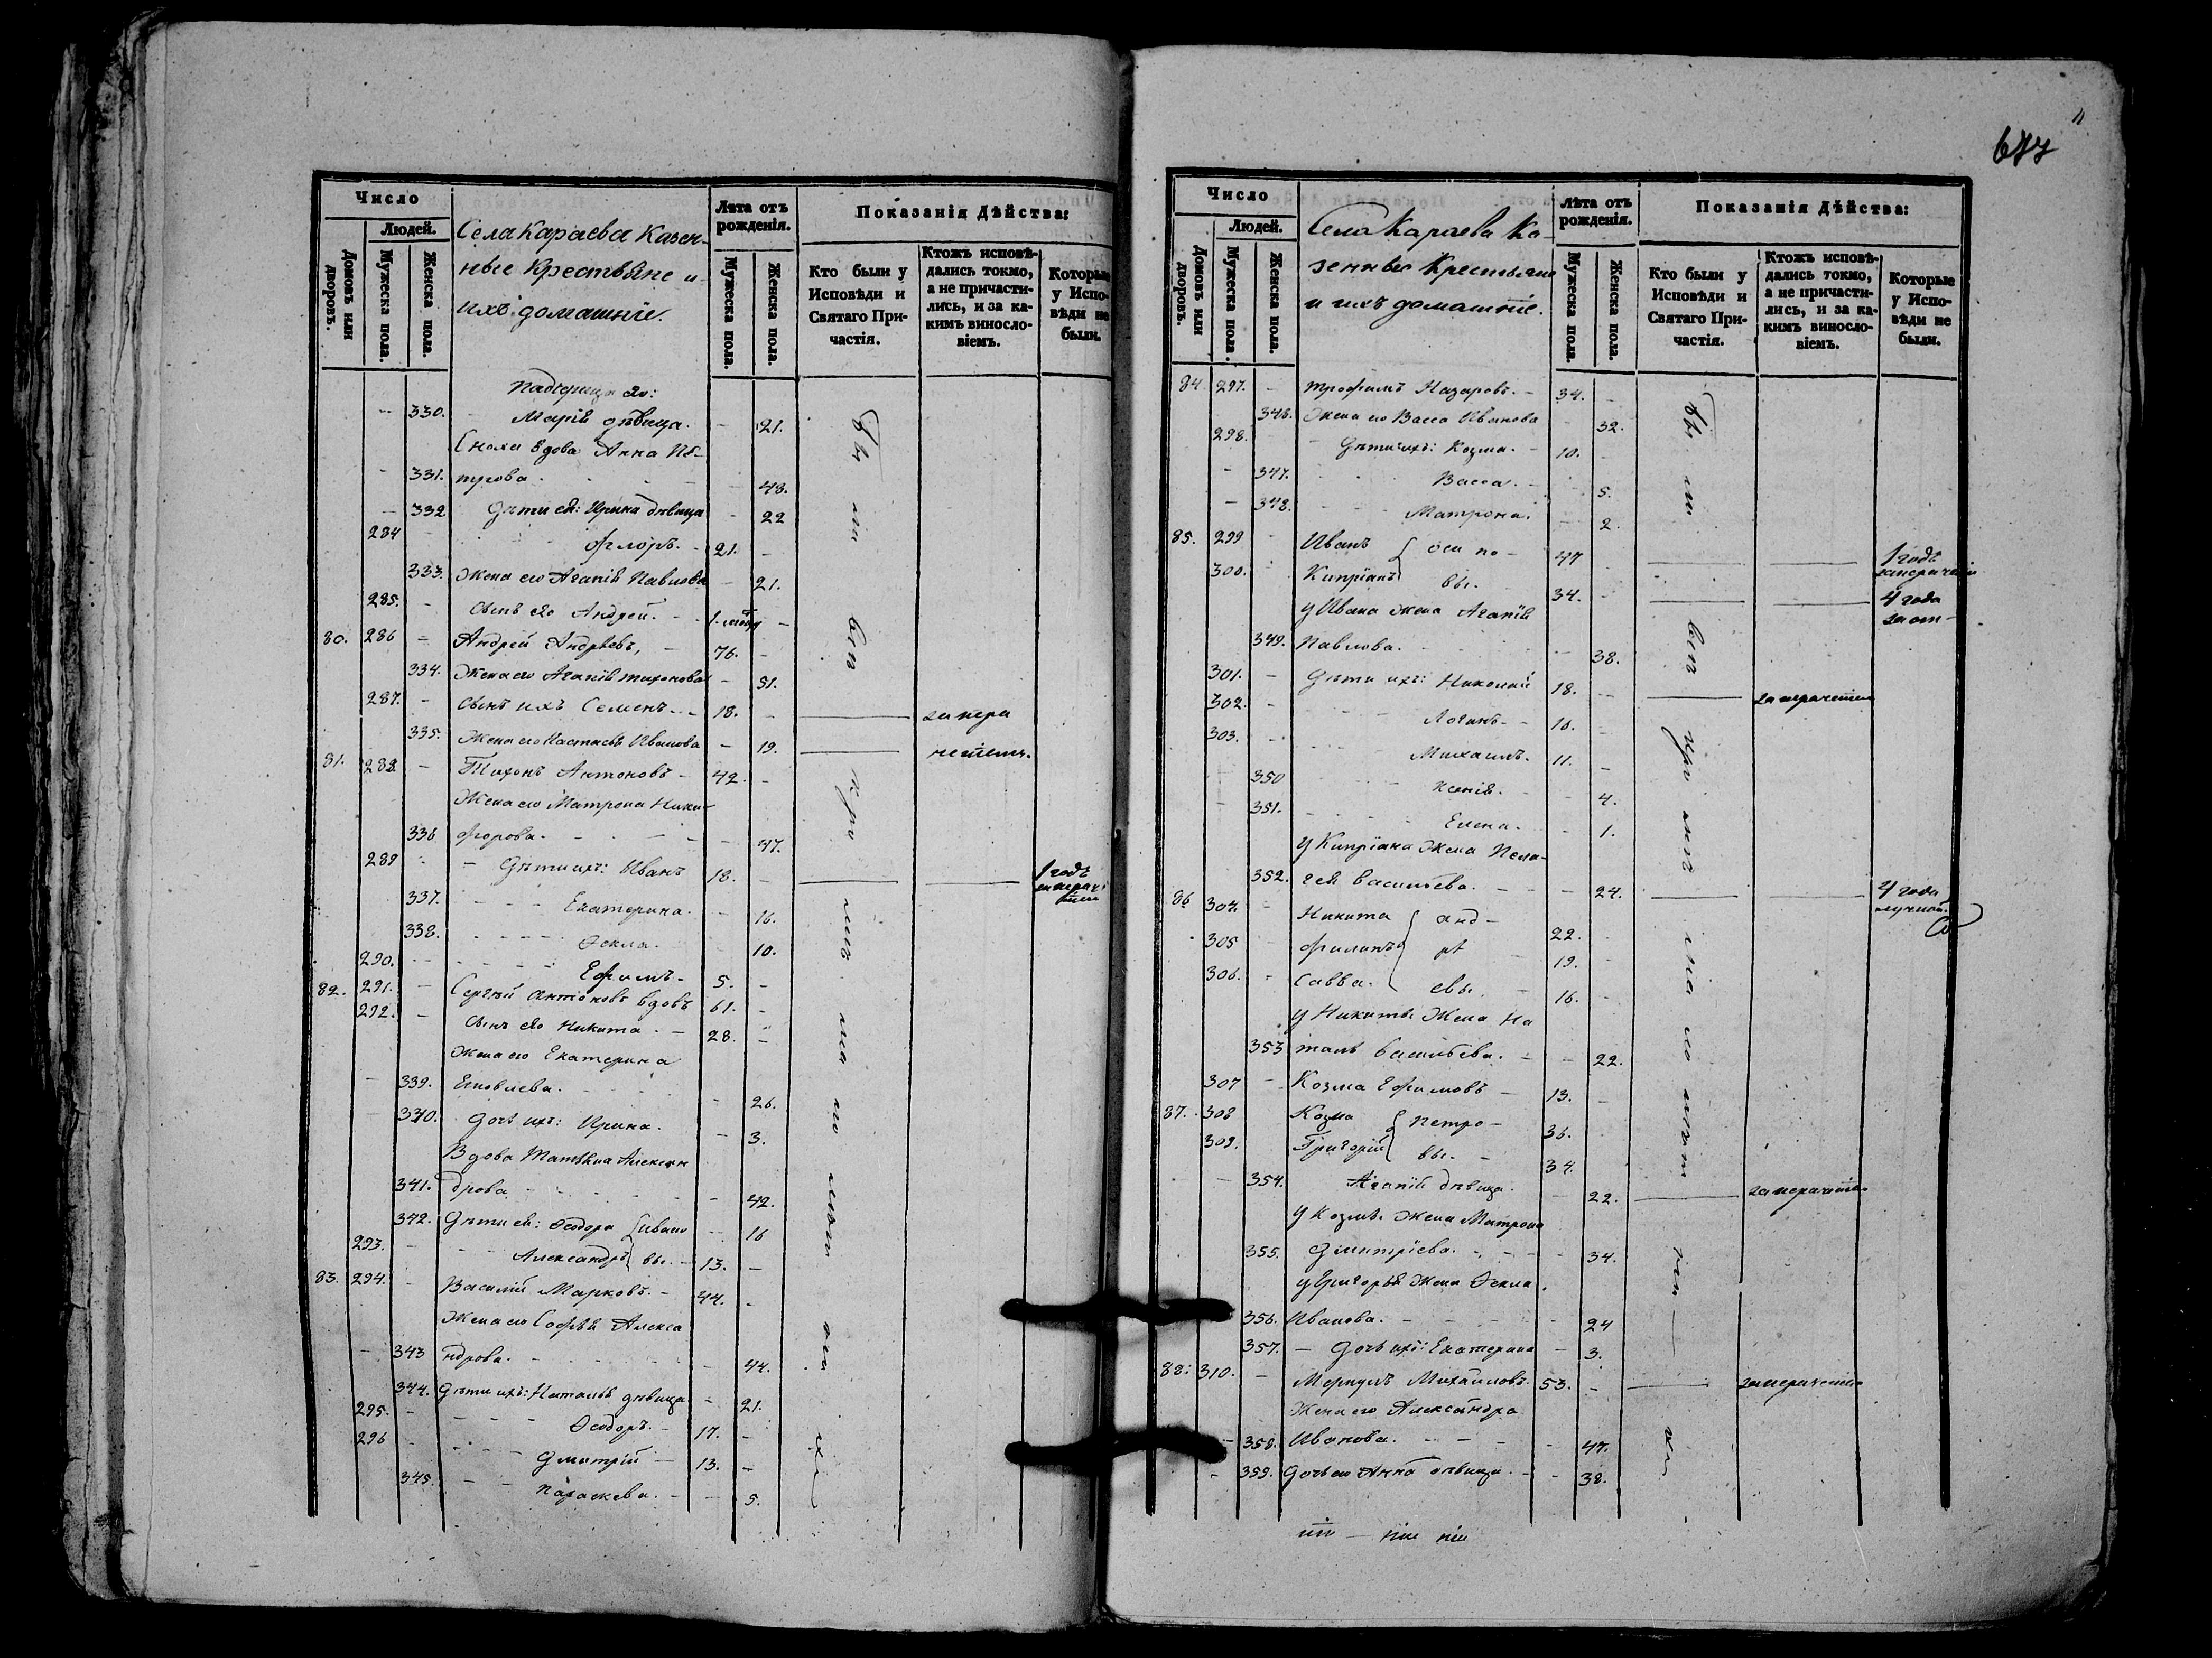 677
Число
Людей.
Домовъ или дворовъ.
Мужеска пола.
Женска пола.
Села Караева Казен-
ные Крестьяне и
ихъ домашніе.
Лѣта отъ рожденія.
Мужеска пола.
Женска пола.
Показанія Дѣйства:
Кто были у Исповѣди и Святаго Причастія.
Ктожъ исповѣдались токмо, а не причастились, и за какимъ винословіемъ.
Которые у Исповѣди не были.
Падчерица его:
- 330. Марія дѣвица. - 21.
Сноха вдова Анна Пе-
- 331. трова. - 48.
- 332 Дѣти ея: Ирина дѣвица - 22
284 - Флоръ. - 21. -
333. Жена его Агапія Павлова - 21.
285. - Сынъ его Андрей. - 1.
80. 286 - Андрей Андреевъ, - 76. -
334. Жена его Агапія Тихонова - 51.
287. - Сынъ ихъ Семенъ. - 18. -
335. Жена его Настасья Иванова - 19.
81. 288. - Тихонъ Антоновъ - 42. -
Жена его Матрона Ники-
336 форова. - 47.
289 - Дѣти ихъ: Иванъ 18. - 1 годъ
337. Екатерина. - 16.
338. Ѳекла. - 10.
290. - Ефимъ - 5. -
82. 291. - Сергѣй Антоновъ вдовъ 61. -
292. - Сынъ его Никита. - 28. -
Жена его Екатерина
- 339. - 26.
340. Дочь ихъ: Ирина. - 3.
Вдова Татьяна Алексан
341. дрова - 42.
342. Дѣти ея: Ѳеодора Ивано - 16
293. - Александръ вы. - 13. -
83. 294. - Василій Марковъ. - 44. -
Жена его Софья Алекса
- 343 ндрова. - 44.
344. Дѣти ихъ: Наталья дѣвица - 21.
295. - Ѳеодоръ. - 17. -
296 - Дмитрій - 13. -
345. Параскева. - 5.
Число
Людей.
Домовъ или дворовъ.
Мужеска пола.
Женска пола.
Села Караева Ка-
зенные Крестьяне
и ихъ домашніе.
Лѣта отъ рожденія.
Мужеска пола.
Женска пола.
Показанія Дѣйства:
Кто были у Исповѣди и Святаго Причастія.
Ктожъ исповѣдались токмо, а не причастились, и за какимъ винословіемъ.
Которые у Исповѣди не были.
84 297. - Трофимъ Назаровъ. - 34. -
346. Жена его Васса Иванова - 32.
298. - Дѣти ихъ: Козма. - 10. -
- 347. Васса. - 5.
- 348. Матрона. - 2.
85. 299 - Иванъ Оси по - 47 1 годъ
300. Кипріанъ вы. - 34. - 4 года
у Ивана жена Агапія
349. Павлова. - 38.
301. - Дѣти ихъ: Николай 18. -
302. - Логинъ - 16. -
303. - Михаилъ. - 11. -
350 Ксенія. - 4.
351. Елена. - 1.
у Кипріана Жена Пела-
352. гея Васильева. - 24. 4 года
86 304. - Никита Анд- 22. -
305 Филипъ рѣ - 19. -
306. - Савва. евы. - 16. -
у Никиты Жена На
353 талья Васильева. - 22.
307 - Козма Ефимовъ - 13. -
87. 308 Козма Петро- 36.
309. Григорій вы. - 34.
- 354. Агапія дѣвица. - 22.
у Козмы Жена Матрона
355. Дмитріева. - 34.
у Григорья Жена Ѳекла
356. Иванова. - 24
357. - Дочь ихъ: Екатерина - 3.
88. 310. - Меркулъ Михайловъ. 53. -
Жена его Александра
- 358. Иванова. - 47.
- 359. Дочь его Анна дѣвица. - 38.